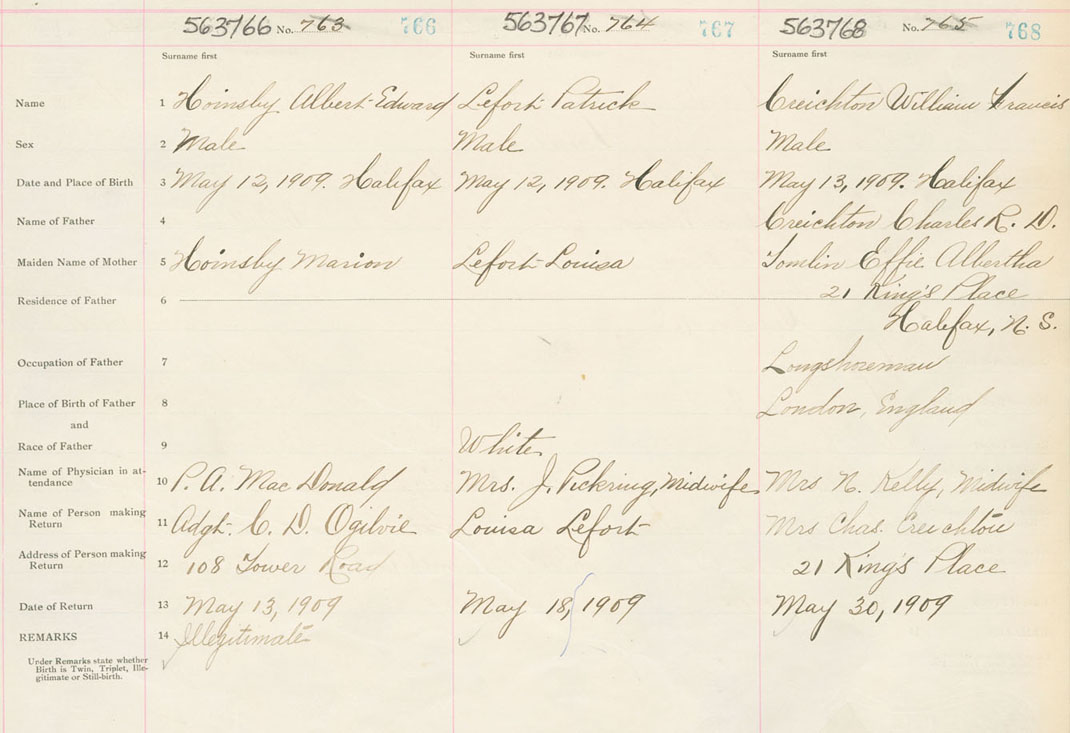 563766 No. 763 766 563767 No. 764 767 563768 No. 765 768
Surname first Surname first Surname first
Name 1 Hoinsby Albert Edward Lefort Patrick Creichton William Francis
Sex 2 Male Male Male
Date and Place of Birth 3 May 12, 1909. Halifax May 12, 1909. Halifax May 13, 1909. Halifax
Name of Father 4 Creichton Charles R. D.
Maiden Name of Mother 5 Hoinsby Marion Lefort Louisa Tomlin Effie Albertha
Residence of Father 6 21 King's Place
Halifax, N. S.
Occupation of Father 7 Longshoreman
Place of Birth of Father 8 London, England
and
Race of Father 9 White
Name of Physician in at-
tendance 10 P. A. Mac Donald Mrs. J. Pickring, Midwife Mrs N. Kelly, Midwife
Name of Person making
Return 11 Adgt. C. D. Ogilvie Louisa Lefort Mrs Chas. Creichton
Address of Person making
Return 12 108 Tower Road 21 King's Place
Date of Return 13 May 13, 1909 May 18, 1909 May 30, 1909
REMARKS 14 Illegitimate
Under Remarks state whether
Birth is Twin, Triplet, Ille-
gitimate or Still-birth.